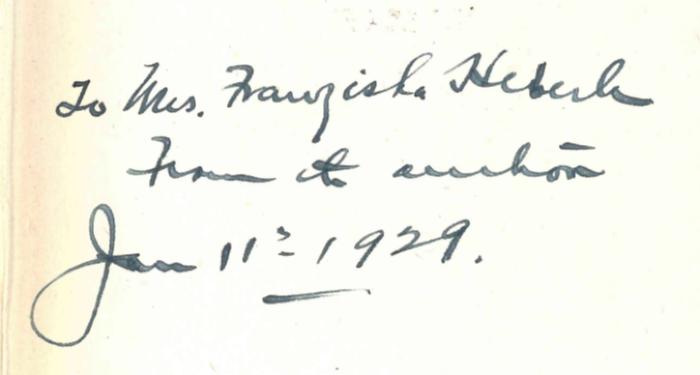 To Mrs. Franziska Heberle
From its author
Jan 11th 1929.